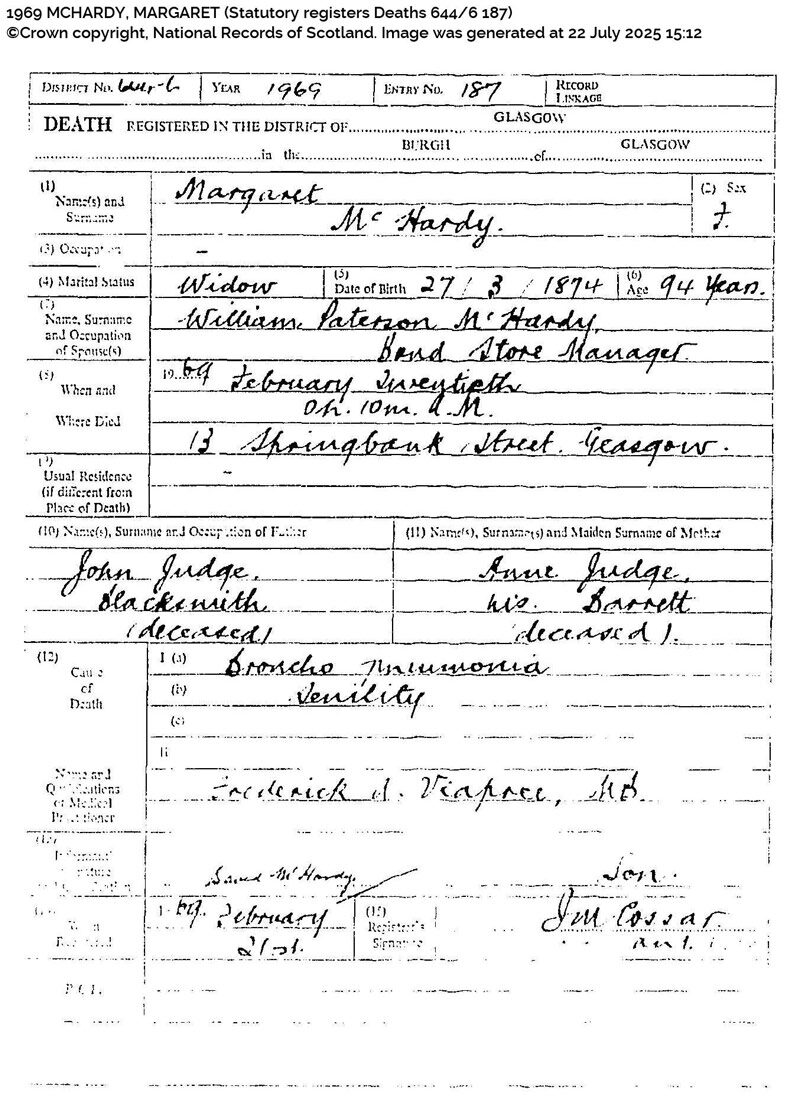 1969 MCHARDY, MARGARET (Statutory registers Deaths 644/6 187)
©Crown copyright, National Records of Scotland. Image was generated at 22 July 2025 15:12
DISTRICT NO. 644-6 YEAR 1969 ENTRY NO. 187 RECORD LINKAGE
DEATH REGISTERED IN THE DISTRICT OF GLASGOW
in the BURGH of GLASGOW
(1) Name(s) and Surname Margaret (2) Sex
Mc Hardy. F.
(3) Occupation –
(4) Marital Status Widow (5) Date of Birth 27 / 3 / 1874 (6) Age 94 Years.
Name, Surname and Occupation of Spouse(s) William Paterson McHardy,
Bond Store Manager
When and Where Died 1969 February Twentieth
0h. 10m. A.M.
13 Springbank Street. Glasgow.
Usual Residence (if different from Place of Death) –
(10) Name(s), Surname and Occupation of Father (11) Name(s), Surname(s) and Maiden Surname of Mother
John Judge, Anne Judge,
Blacksmith m.s. Barrett
(deceased) (deceased).
(12) Cause of Death I (a) Broncho Pneumonia
(b) Senility
(c)
II
Name and Qualifications of Medical Practitioner Frederick MB
McHardy. Son.
1969. February (15) Registrar's Signature JM Cossar
21st.